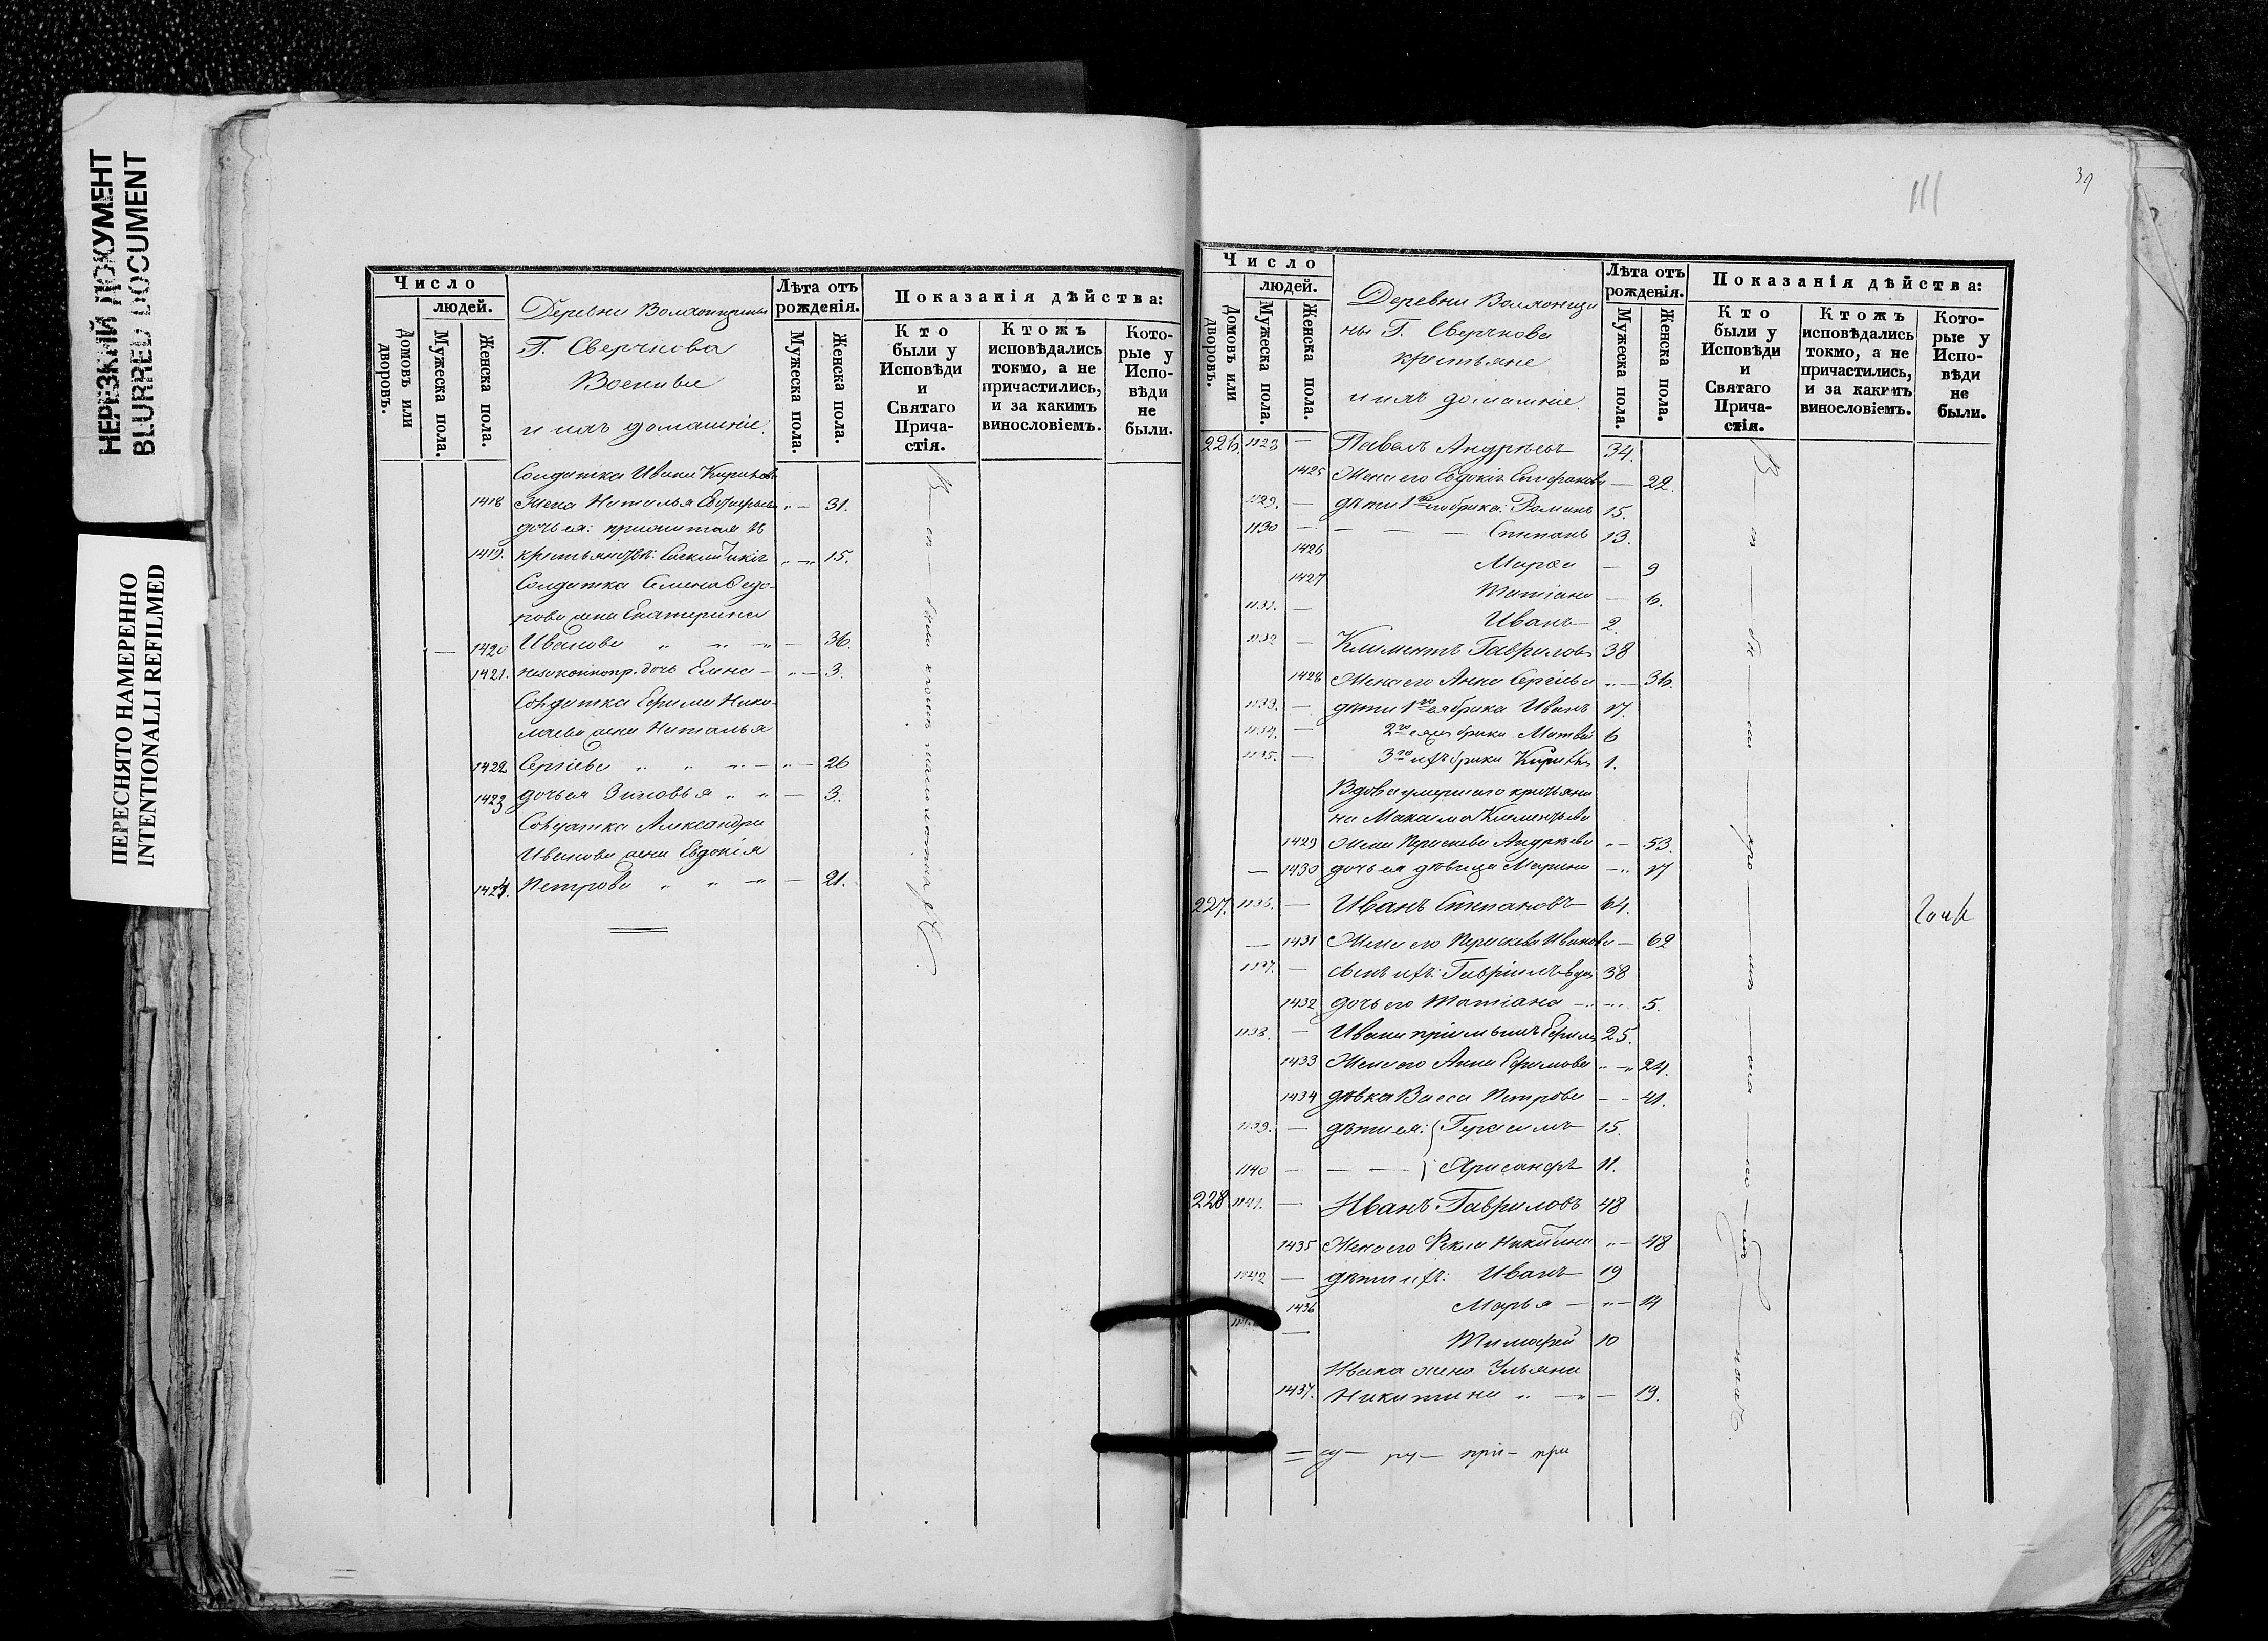 НЕРЕЗКИЙ ДОКУМЕНТ
BLURRED DOCUMENT
ПЕРЕСНЯТО НАМЕРЕННО
INTENTIONALLI REFILMED
Число
людей.
Домовъ или дворовъ.
Мужеска пола.
Женска пола.
Деревни
Г. Сверчкова
и ихъ домашніе.
Лѣта отъ рожденія.
Мужеска пола.
Женска пола.
Показанія дѣйства:
Кто были у Исповѣди и Святаго Причастія.
Ктожъ исповѣдались токмо, а не причастились, и за какимъ винословіемъ.
Которые у Исповѣди не были.
Солдатка Ивана
1418 Жена Наталья 31.
дочь ея:
1419. 15.
Солдатка Семена Ѳедо-
рова жена Екатерина
1420 Иванова 36.
1421. дочь Елена 3.
Солдатка Ефима Нико-
лаева жена Наталья
1422 Сергіева 26
1423 дочь ея Зиновья 3.
Солдатка Александра
Иванова жена Евдокія
1424. Петрова 21.
39
111
Число
людей.
Домовъ или дворовъ.
Мужеска пола.
Женска пола.
Деревни
ны Г. Сверчкова
крестьяне
и ихъ домашніе.
Лѣта отъ рожденія.
Мужеска пола.
Женска пола.
Показанія дѣйства:
Кто были у Исповѣди и Святаго Причастія.
Ктожъ исповѣдались токмо, а не причастились, и за какимъ винословіемъ.
Которые у Исповѣди не были.
226. Павелъ Андреевъ 34.
1425 Жена его Евдокія 22.
1129. — дѣти 1го брака: Романъ 15.
1130 — Степанъ 13.
1426 Марѳа — 9
1427 Татіана — 6.
1131. — Иванъ 2.
1132 — Климентъ Гавриловъ 38
1428 Жена его Анна Сергіева 36.
1133. — дѣти 1го брака Иванъ 17.
1134. — 2го брака Матвѣй 6
1135. — 3го брака 1.
Вдова умершаго крестьяни
на Максима Климентьева
1429 жена Параскева Андреева 53.
1430 дочь ея дѣвица Марина 17
227. 1136. — Иванъ Степановъ 64.
1431 Жена его Параскева Иванова — 62
1137. — сынъ ихъ: Гавріилъ вдов 38
1432 дочь его Татіана 5.
1138. — Ивана пріемышъ Ефимъ 25.
1433 Жена его Анна Ефимова 24.
1434 дѣвка Васса Петрова 41.
1139. — дѣти ея: Герасимъ 15.
1140 — 11.
228 1141. — Иванъ Гавриловъ 48
1435 Жена его Ѳекла Никитина 48
1142 — дѣти ихъ: Иванъ 19
1436 Марья 14
— Тимоѳей 10
Ивана жена Ульяна
1437. Никитина 19.